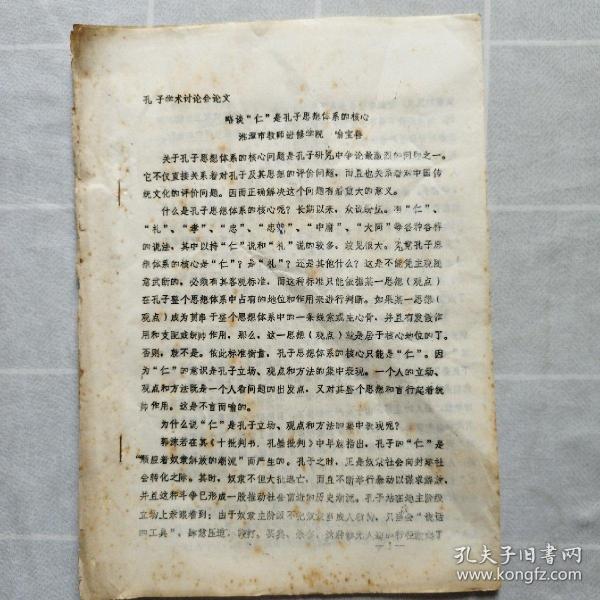 孔子学术讨论会论文
略谈“仁”是孔子思想体系的核心
湘潭市教师进修学院 喻宝善
关于孔子思想体系的核心问题是孔子研究中争论最激烈的问题之一。
它不仅直接关系着对孔子及其思想的评价问题，而且也关系着对中国传
统文化的评价问题。因而正确解决这个问题有着重大的意义。
什么是孔子思想体系的核心呢？长期以来，众说纷纭。有“仁”、
“礼”、“孝”、“忠”、“忠恕”、“中庸”、“大同”等各种各样
的说法，其中以持“仁”说和“礼”说的较多，歧见很大。究竟孔子思
想体系的核心是“仁”？是“礼”？还是其他什么？这是不能凭主观随
意武断的。必须有其客观标准。而这种标准只能依据某一思想（观点）
在孔子整个思想体系中占有的地位和作用来进行判断。如果某一思想（
观点）成为贯串于整个思想体系中的一条线索或主心骨，并且有发散作
用和支配或统帅作用，那么，这一思想（观点）就是居于核心地位的了。
否则，就不是。依此标准衡量，孔子思想体系的核心只能是“仁”。因
为“仁”的意识是孔子立场、观点和方法的集中表现。一个人的立场、
观点和方法既是一个人看问题的出发点，又对其整个思想和言行起着统
帅作用。这是不言而喻的。
为什么说“仁”是孔子立场、观点和方法的集中表现呢？
郭沫若在其《十批判书．孔墨批判》中早就指出，孔子的“仁”是
“顺应着奴隶解放的潮流”而产生的。孔子之时，正是奴隶社会向封建社
会转化之际。其时，奴隶不但大批逃亡，而且不断举行暴动以谋求解放，
并且这种斗争已形成一股推动社会前进的历史潮流。孔子站在地主阶级
立场上亲眼看到：由于奴隶主阶级不把奴隶当成人看待，只当会“说话
的工具”，肆意压迫、
孔夫子旧书网
www.kongfz.com